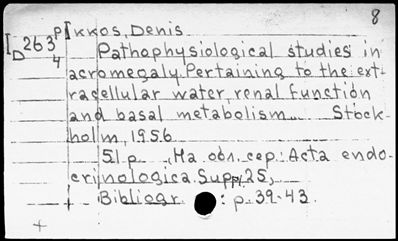 8
Ikkos, Denis
D263/4 Pathophysiological studies in
acromegaly. Pertaining to the ext-
racellular water, renal function
and basal metabolism... Stock-
holm, 1956
51 p. На обл. сер.: Acta endo-
crinologica. Suppl. 25,
Bibliogr.: p. 39-43.
+